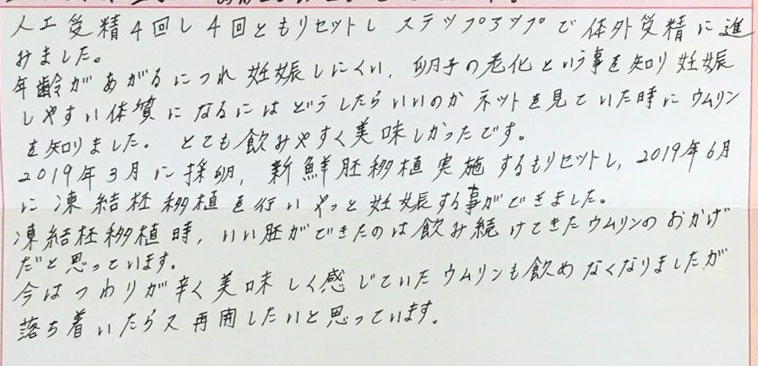 人工受精4回し4回ともリセットし ステップアップで体外受精に進
みました。
年齢があがるにつれ妊娠しにくい、卵子の老化という事を知り妊娠
しやすい体質になるにはどうしたらいいのかネットを見ていた時にウムリン
を知りました。 とても飲みやすく美味しかったです。
2019年3月に採卵、新鮮胚移植実施するもリセットし、2019年6月
に凍結胚移植を行いやっと妊娠する事ができました。
凍結胚移植時、いい胚ができたのは飲み続けてきたウムリンのおかげ
だと思っています。
今はつわりが辛く美味しく感じていたウムリンも飲めなくなりましたが
落ち着いたら又再開したいと思っています。